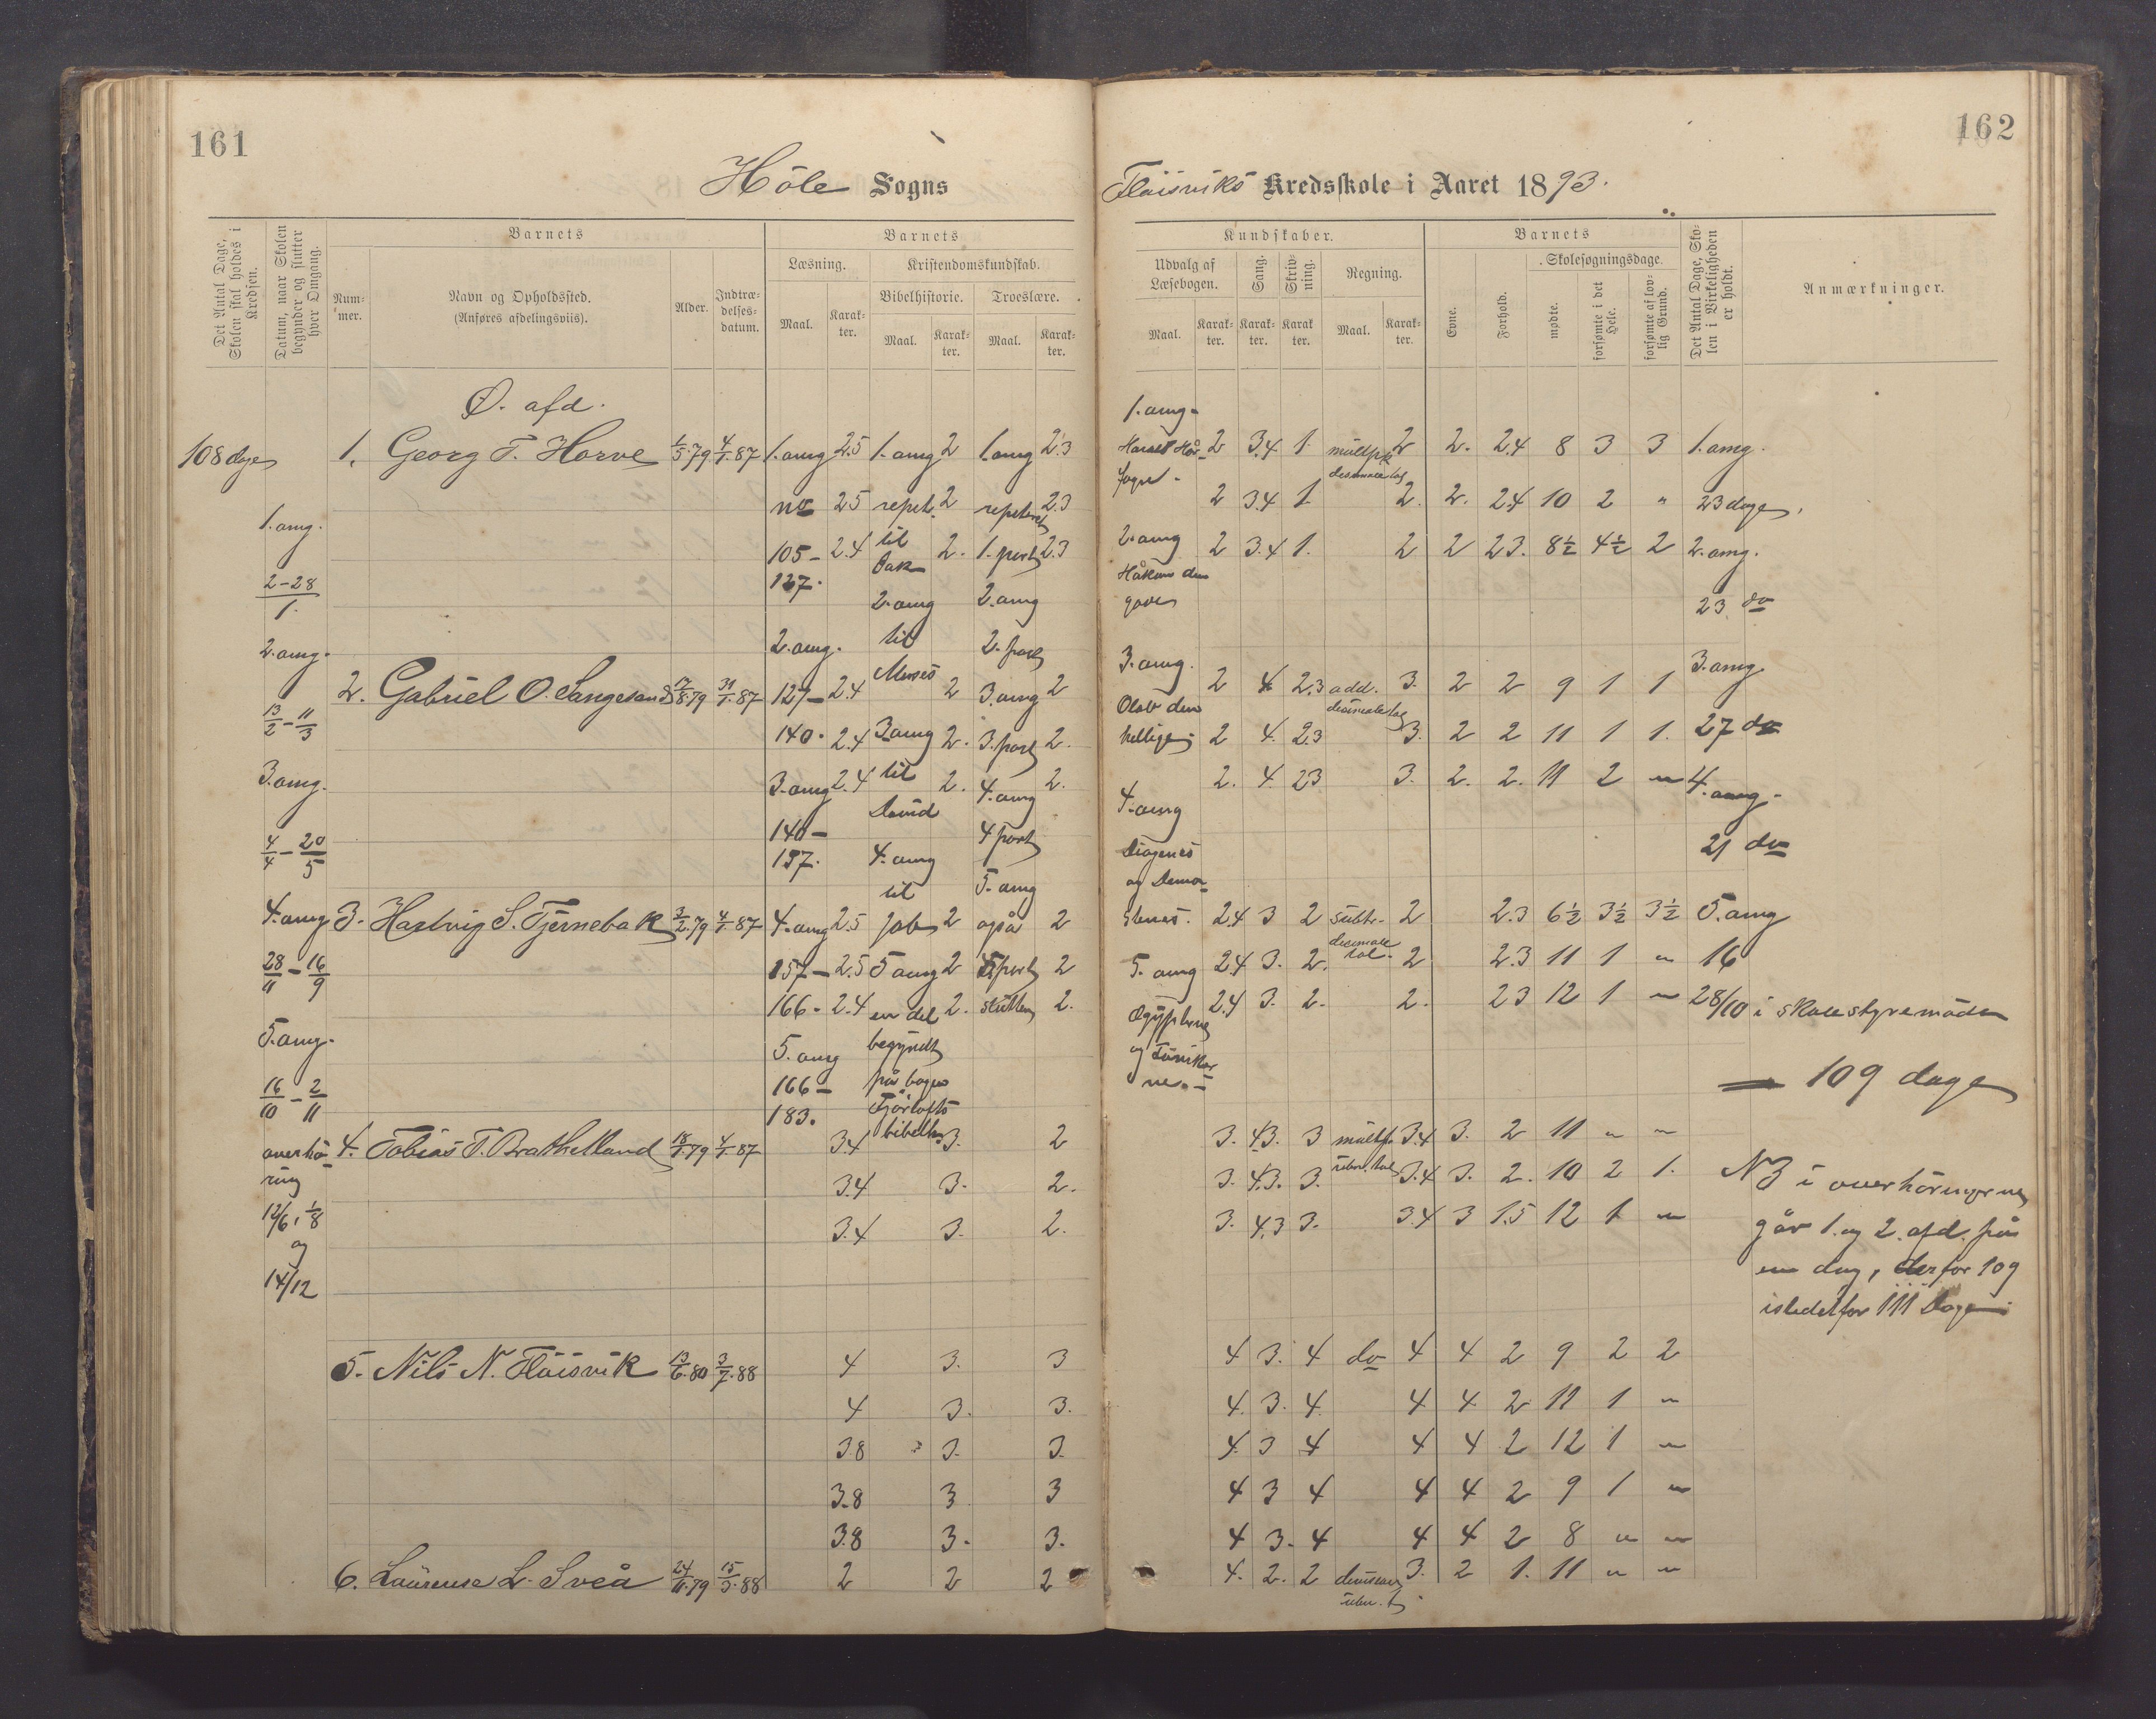 161
162
Höle Sogns
Flöisviks Kredsskole i Aaret 1893.
Det Antal Dage, Skolen skal holdes i Kredsen.
Datum, naar Skolen begynder og slutter hver Omgang.
Barnets
Num-mer.
Navn og Opholdssted.
(Anføres afdelingsviis).
Alder.
Indtræ-delses-datum.
Barnets
Læsning.
Maal.
Karak-ter.
Kristendomskundskab.
Bibelhistorie.
Maal.
Karak-ter.
Troeslære.
Maal.
Karak-ter.
Kundskaber.
Udvalg af Læsebogen.
Maal.
Karak-ter.
Sang.
Karak-ter.
Skriv-ning.
Karak ter.
Regning.
Maal.
Karak-ter.
Barnets
Evne.
Forhold.
Skolesøgningsdage.
mødte.
forsømte i det Hele.
forsømte af lov-lig Grund.
Det Antal Dage, Sko-len i Virkeligheden er holdt.
Anmærkninger.
Ø. afd.
108 dage 1. Georg T. Horve 1/5.79 4/1.87 1. omg 2.5 1. omg 2 1. omg 2.3
no 2.5 repet. 2 2.3
1. omg. 105- 2.4 til 2. 1. part 2.3
2-28/1. 127. 2. omg 2. omg
2. omg. 2. omg. til 2. part
2. Gabriel O. Langesand 17/8.79 31/1.87 127- 2.4 Moses 2 3. omg 2
13/2-11/3 140. 2.4 3. omg 2. 3. part 2.
3. omg. 3. omg 2.4 til 2. 4. omg 2.
David
4/4-20/5 140- 4 part
157. 4. omg
til 5. omg
4. omg 3. Hartvig S. Tjernebak 3/2.79 4/1.87 4. omg 2.5 Job 2 også 2
28/11-16/9 157- 2.5 5 omg 2 5. part 2
166- 2.4 en del 2. slutten 2.
5. omg. 5. omg begyndt
16/10-2/11 166- på bogen
183.
overhö-ring 4. Tobias T. Bratheland 18/1.79 4/1.87 3.4 3. 2
3.4 3. 2.
12/6, 1/8 3.4 3. 2.
og
14/12
5. Nils N. Flöisvik 13/6.80 3/7.88 4 3. 3
4 3. 3.
3.8 3. 3.
3.8 3 3
3.8 3. 3.
6. Laurense L. Sveå 24/11.79 15/3.88 2 2 2
1. omg.
Harald Hår- 2 3.4 1. multpk 2 2. 2.4 8 3 3 1. omg.
fagre. 2 3.4 1. 2. 2. 2.4 10 2 " 23 dage.
2. omg 2 3.4 1. 2 2 2.3. 8½ 4½ 2 2. omg.
Håkon den
gode 23 do
3. omg. 2 4 2.3 add. 3. 2 2 9 1 1 3. omg
Olav den decimaltal
hellige 2 4. 2.3 3. 2 2 11 1 1. 27 do
2. 4. 2.3 3. 2. 2. 11 2 " 4. omg.
4. omg
Diogenes 21 do
og Demo-
stenes. 2.4 3 2 subtr. 2 2.3 6½ 3½ 3½ 5. omg
5. omg 2.4 3. 2. decimale tal. 2 2.3 11 1 " 16
Ægypterne 2.4 3. 2. 2. 2.3 12 1 " 28/10 i skolestyremöde
og Fönikerne.
= 109 dage
3. 4.3. 3 multp. 3.4 3. 2 11 " "
3. 4.3. 3. uben. tal 3.4 3. 2. 10 2 1.
3. 4.3 3. 3.4 3 1.5 12 1. "
NB i overhöringerne
går 1. og 2. afd. på
en dag, derfor 109
istedetfor 111 Dage.
4 3. 4 do 4 4 2 9 2 2
4. 3. 4. 4 4 2 11 1 "
4. 3 4 4 4 2 12 1 "
4 3 4 4 4 2 9 1 "
4 3. 4 4 4 2 8 " "
4. 2. 2 3. 2 1. 11 " "